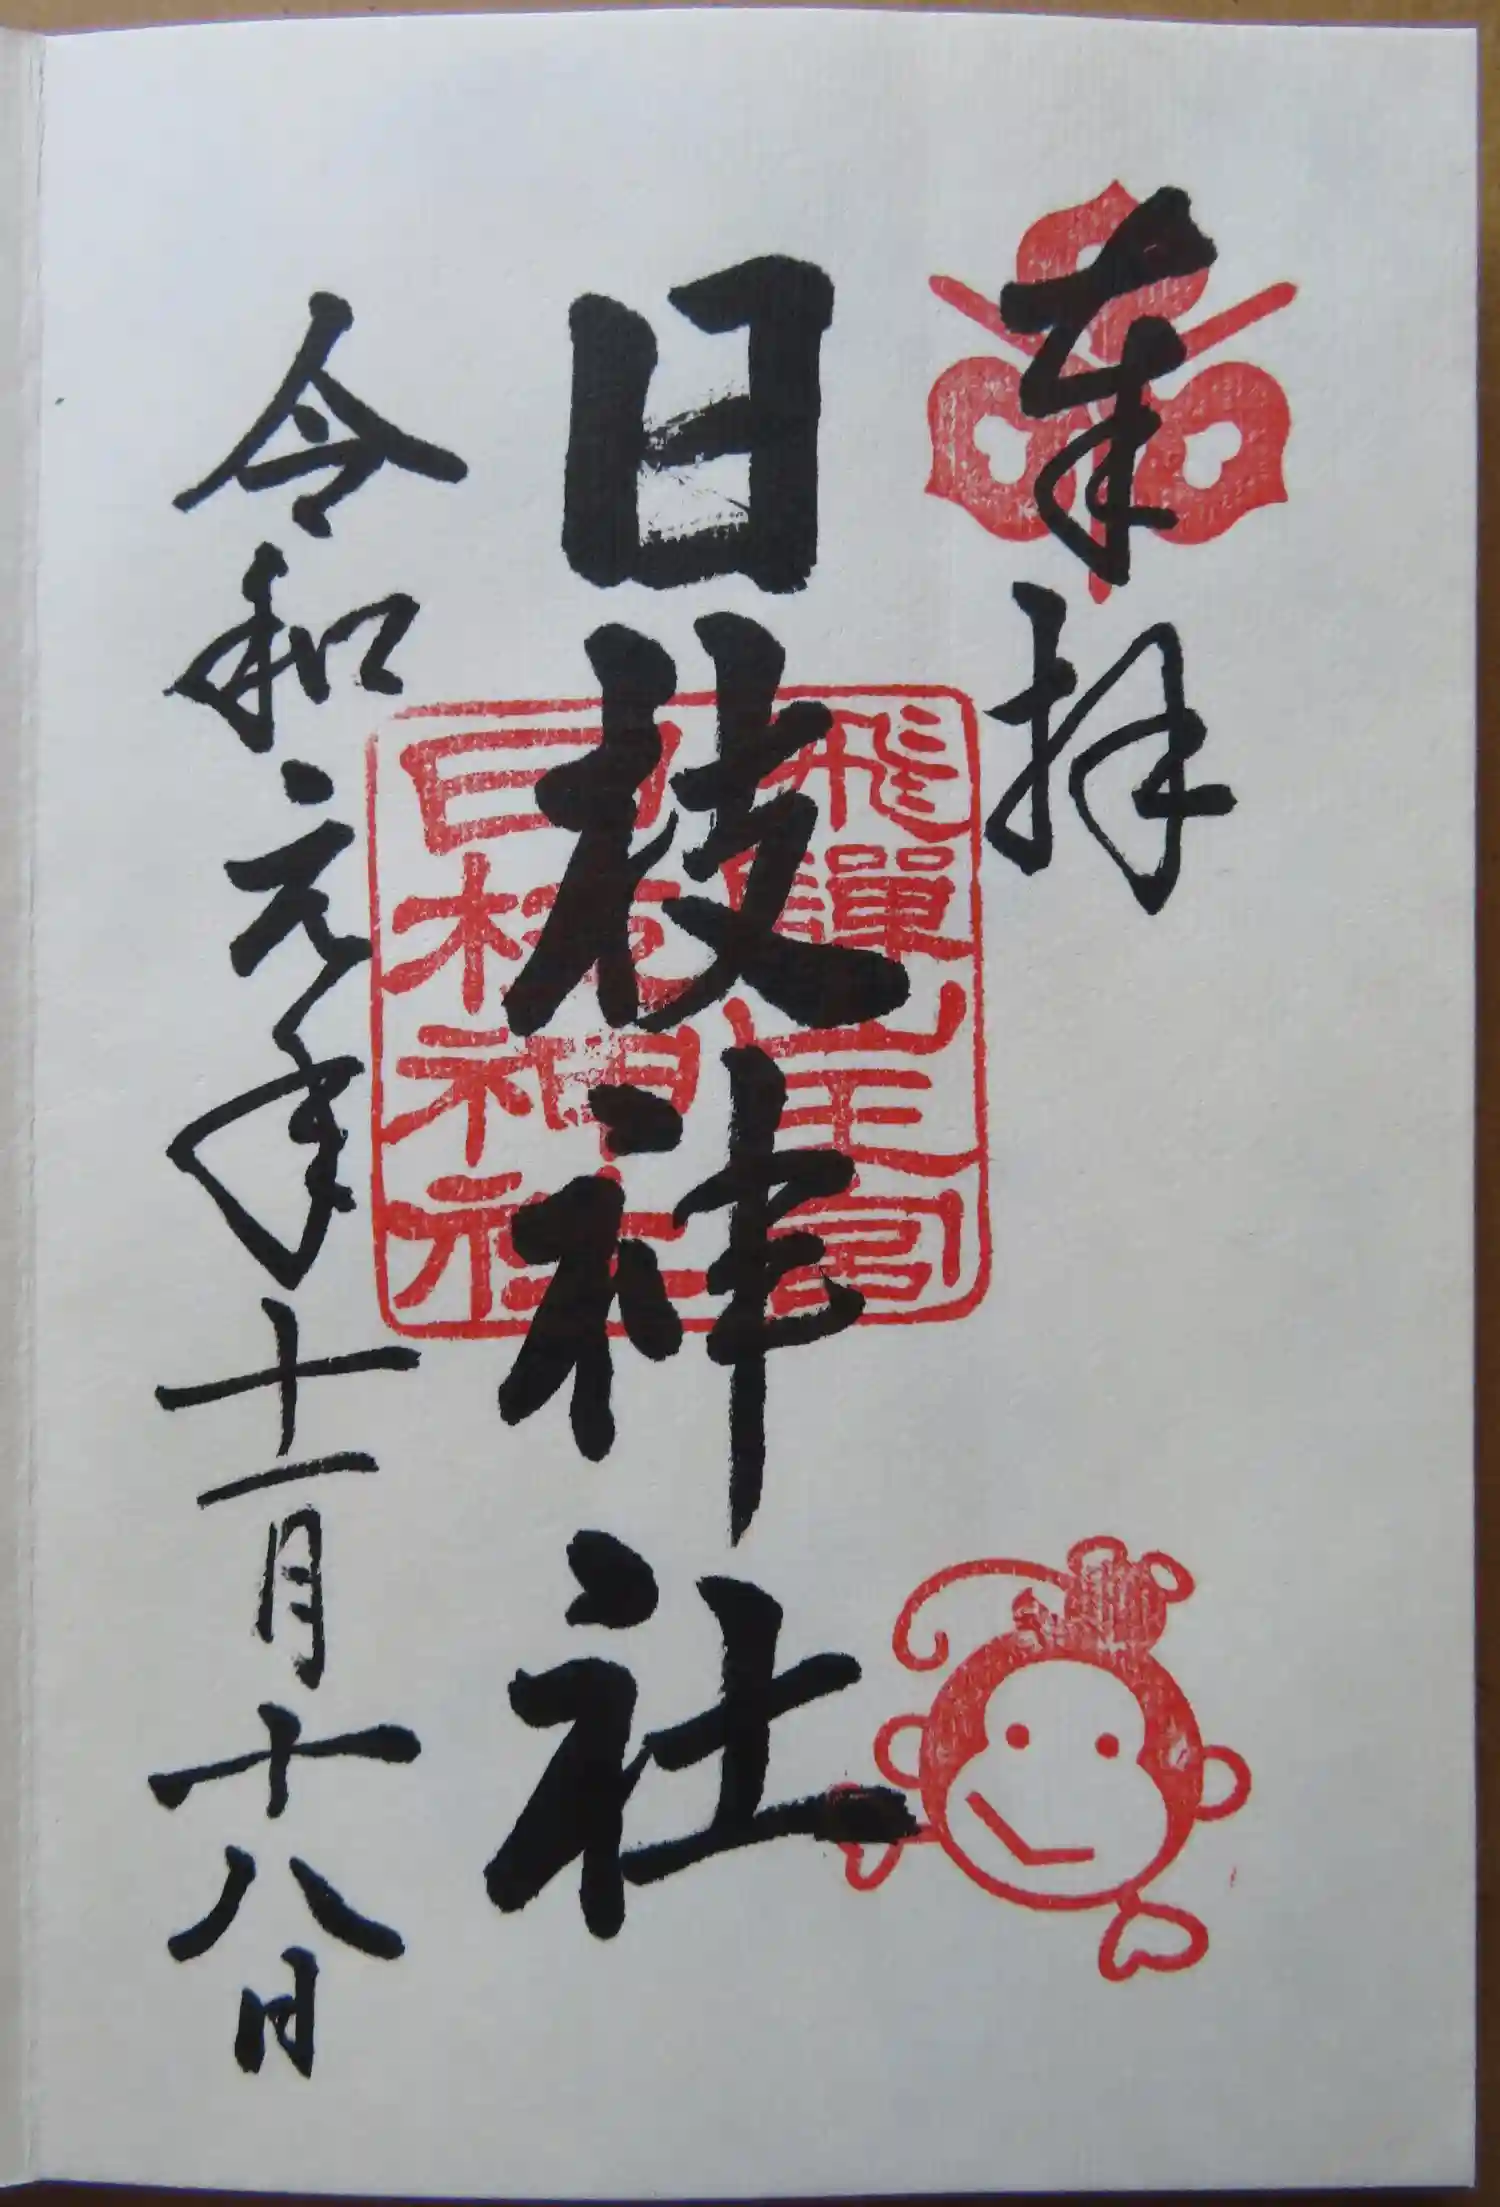 奉拝
日枝神社
飛騨山王宮
日枝神社
令和元年十一月十八日